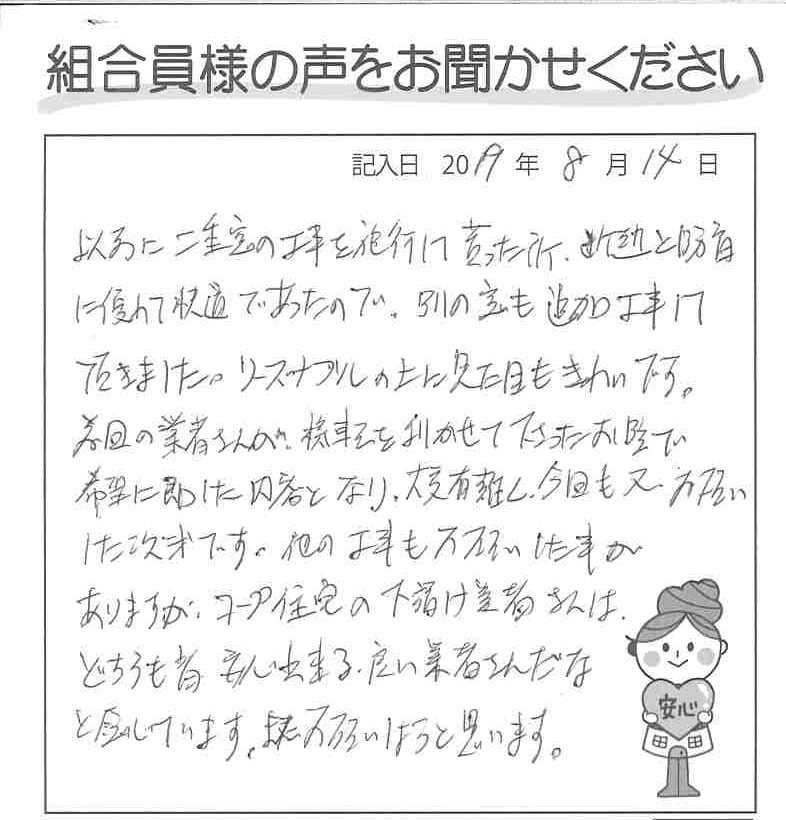 組合員様の声をお聞かせください
記入日 2019年 8月14日
以前に二重窓の工事を施行して貰った所、断熱と防音
に優れて快適であったので、別の窓も追加工事して
頂きました。リーズナブルの上に見た目もきれいです。
前回の業者さんが、機転を利かせて下さったお陰で
希望に即した内容となり、大変有難く、今回も又、お願い
した次第です。他の工事もお願いした事が
ありますが、コープ住宅の下請け業者さんは、
どちらも皆 安心出来る、良い業者さんだな
と感じています。又お願いしようと思います。
安心